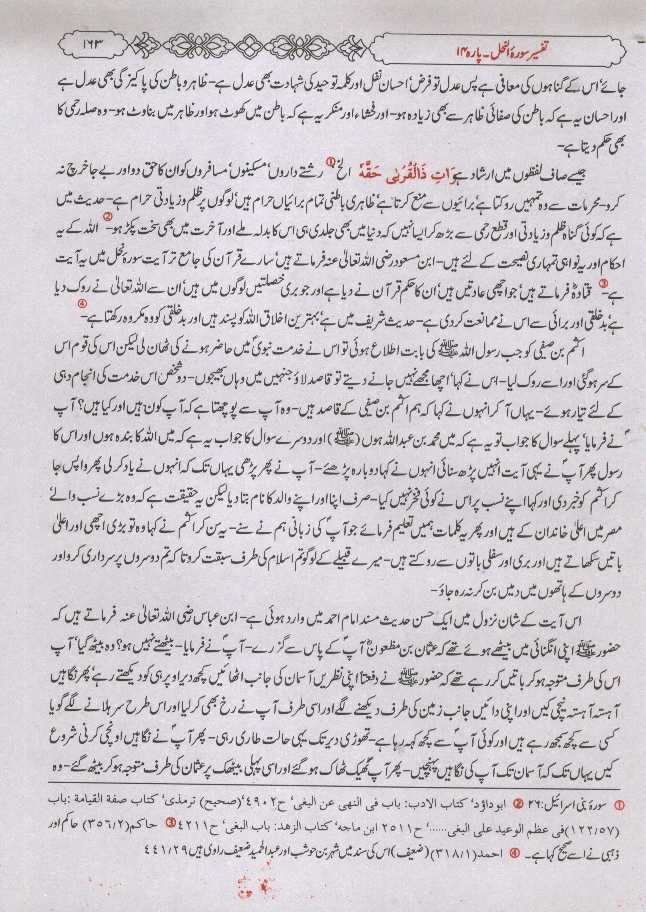 تفسیر سورۂ النحل۔ پارہ ۱۴
۱۶۳
جائے‘ اس کے گناہوں کی معافی ہے پس عدل تو فرض‘ احسان نفل اور کلمہ توحید کی شہادت بھی عدل ہے۔ ظاہر و باطن کی پاکیزگی بھی عدل ہے
اور احسان یہ ہے کہ باطن کی صفائی ظاہر سے بھی زیادہ ہو۔ اور فحشاء اور منکر یہ ہے کہ باطن میں کھوٹ ہو اور ظاہر میں بناوٹ ہو۔ وہ صلہ رحمی کا
بھی حکم دیتا ہے۔
جیسے صاف لفظوں میں ارشاد ہے وَاٰتِ ذَاالْقُرْبٰى حَقَّهٗ الخ ① رشتے داروں‘ مسکینوں‘ مسافروں کو ان کا حق دو اور بے جا خرچ نہ
کرو۔ محرمات سے وہ تمہیں روکتا ہے‘ برائیوں سے منع کرتا ہے‘ ظاہری باطنی تمام برائیاں حرام ہیں‘ لوگوں پر ظلم و زیادتی حرام ہے۔ حدیث میں
ہے کہ کوئی گناہ ظلم و زیادتی اور قطع رحمی سے بڑھ کر ایسا نہیں کہ دنیا میں بھی جلدی ہی اس کا بدلہ ملے اور آخرت میں بھی سخت پکڑ ہو۔ ② اللہ کے یہ
احکام اور یہ نواہی تمہاری نصیحت کے لئے ہیں۔ ابن مسعود رضی اللہ تعالیٰ عنہ فرماتے ہیں‘ سارے قرآن کی جامع تر آیت سورۂ نحل میں یہ آیت
ہے۔ ③ قتادہؒ فرماتے ہیں‘ جو اچھی عادتیں ہیں‘ ان کا حکم قرآن نے دیا ہے اور جو بری خصلتیں لوگوں میں ہیں‘ ان سے اللہ تعالیٰ نے روک دیا
ہے‘ بدخلقی اور برائی سے اس نے ممانعت کر دی ہے۔ حدیث شریف میں ہے‘ بہترین اخلاق اللہ کو پسند ہیں اور بدخلقی کو وہ مکروہ رکھتا ہے۔ ④
اکثم بن صیفی کو جب رسول اللہ ﷺ کی بابت اطلاع ہوئی تو اس نے خدمت نبویؐ میں حاضر ہونے کی ٹھان لی لیکن اس کی قوم اس
کے سر ہو گئی اور اسے روک لیا۔ اس نے کہا‘ اچھا مجھے نہیں جانے دیتے تو قاصد لاؤ جنہیں میں وہاں بھیجوں۔ دو شخص اس خدمت کی انجام دہی
کے لئے تیار ہوئے۔ یہاں آ کر انہوں نے کہا کہ ہم اکثم بن صیفی کے قاصد ہیں۔ وہ آپ سے پوچھتا ہے کہ آپ کون ہیں اور کیا ہیں؟ آپ
نے فرمایا‘ پہلے سوال کا جواب تو یہ ہے کہ میں محمد بن عبداللہ ہوں (ﷺ) اور دوسرے سوال کا جواب یہ ہے کہ میں اللہ کا بندہ ہوں اور اس کا
رسول پھر آپؐ نے یہی آیت انہیں پڑھ سنائی انہوں نے کہا دوبارہ پڑھئے۔ آپ نے پھر پڑھی یہاں تک کہ انہوں نے یاد کر لی پھر واپس جا
کر اکثم کو خبر دی اور کہا اپنے نسب پر اس نے کوئی فخر نہیں کیا۔ صرف اپنا اور اپنے والد کا نام بتا دیا لیکن یہ حقیقت ہے کہ وہ بڑے نسب والے‘
مضر میں اعلیٰ خاندان کے ہیں اور پھر یہ کلمات ہمیں تعلیم فرمائے جو آپؐ کی زبانی ہم نے سنے۔ یہ سن کر اکثم نے کہا وہ تو بڑی اچھی اور اعلیٰ
باتیں سکھاتے ہیں اور بری اور سفلی باتوں سے روکتے ہیں۔ میرے قبیلے کے لوگو تم اسلام کی طرف سبقت کرو تا کہ تم دوسروں پر سرداری کرو اور
دوسروں کے ہاتھوں میں دمیں بن کر نہ رہ جاؤ۔
اس آیت کے شان نزول میں ایک حسن حدیث مسند امام احمد میں وارد ہوئی ہے۔ ابن عباس رضی اللہ تعالیٰ عنہ فرماتے ہیں کہ
حضور ﷺ اپنی انگنائی میں بیٹھے ہوئے تھے کہ عثمان بن مظعونؓ آپؐ کے پاس سے گزرے۔ آپؐ نے فرمایا۔ بیٹھتے نہیں ہو؟ وہ بیٹھ گیا‘ آپ
اس کی طرف متوجہ ہو کر باتیں کر رہے تھے کہ حضور ﷺ نے دفعتاً اپنی نظریں آسمان کی جانب اٹھائیں کچھ دیر اوپر ہی کو دیکھتے رہے‘ پھر نگاہیں
آہستہ آہستہ نیچی کیں اور اپنی دائیں جانب زمین کی طرف دیکھنے لگے اور اسی طرف آپ نے رخ بھی کر لیا اور اس طرح سر ہلانے لگے گویا
کسی سے کچھ سمجھ رہے ہیں اور کوئی آپؐ سے کچھ کہہ رہا ہے۔ تھوڑی دیر تک یہی حالت طاری رہی۔ پھر آپؐ نے نگاہیں اونچی کرنی شروع
کیں یہاں تک کہ آسمان تک آپ کی نگاہیں پہنچیں۔ پھر آپؐ ٹھیک ٹھاک ہو گئے اور اسی پہلی بیٹھک پر عثمان کی طرف متوجہ ہو کر بیٹھ گئے۔ وہ
① سورۂ بنی اسرائیل: ۲۶ ② ابوداؤد‘ کتاب الادب: باب فی النهی عن البغی‘ ح۴۹۰۲ (صحیح) ترمذی‘ کتاب صفة القیامة: باب
(۱۲۲/۵۷) فی عظم الوعید علی البغی......‘ ح۲۵۱۱ ابن ماجه‘ کتاب الزهد: باب البغی‘ ح۴۲۱۱ ③ حاکم (۳۵۶/۲) حاکم اور
ذہبی نے اسے صحیح کہا ہے۔ ④ احمد (۳۱۸/۱) (ضعیف) اس کی سند میں شہر بن حوشب اور عبدالحمید ضعیف راوی ہیں ۴۴۱/۲۹